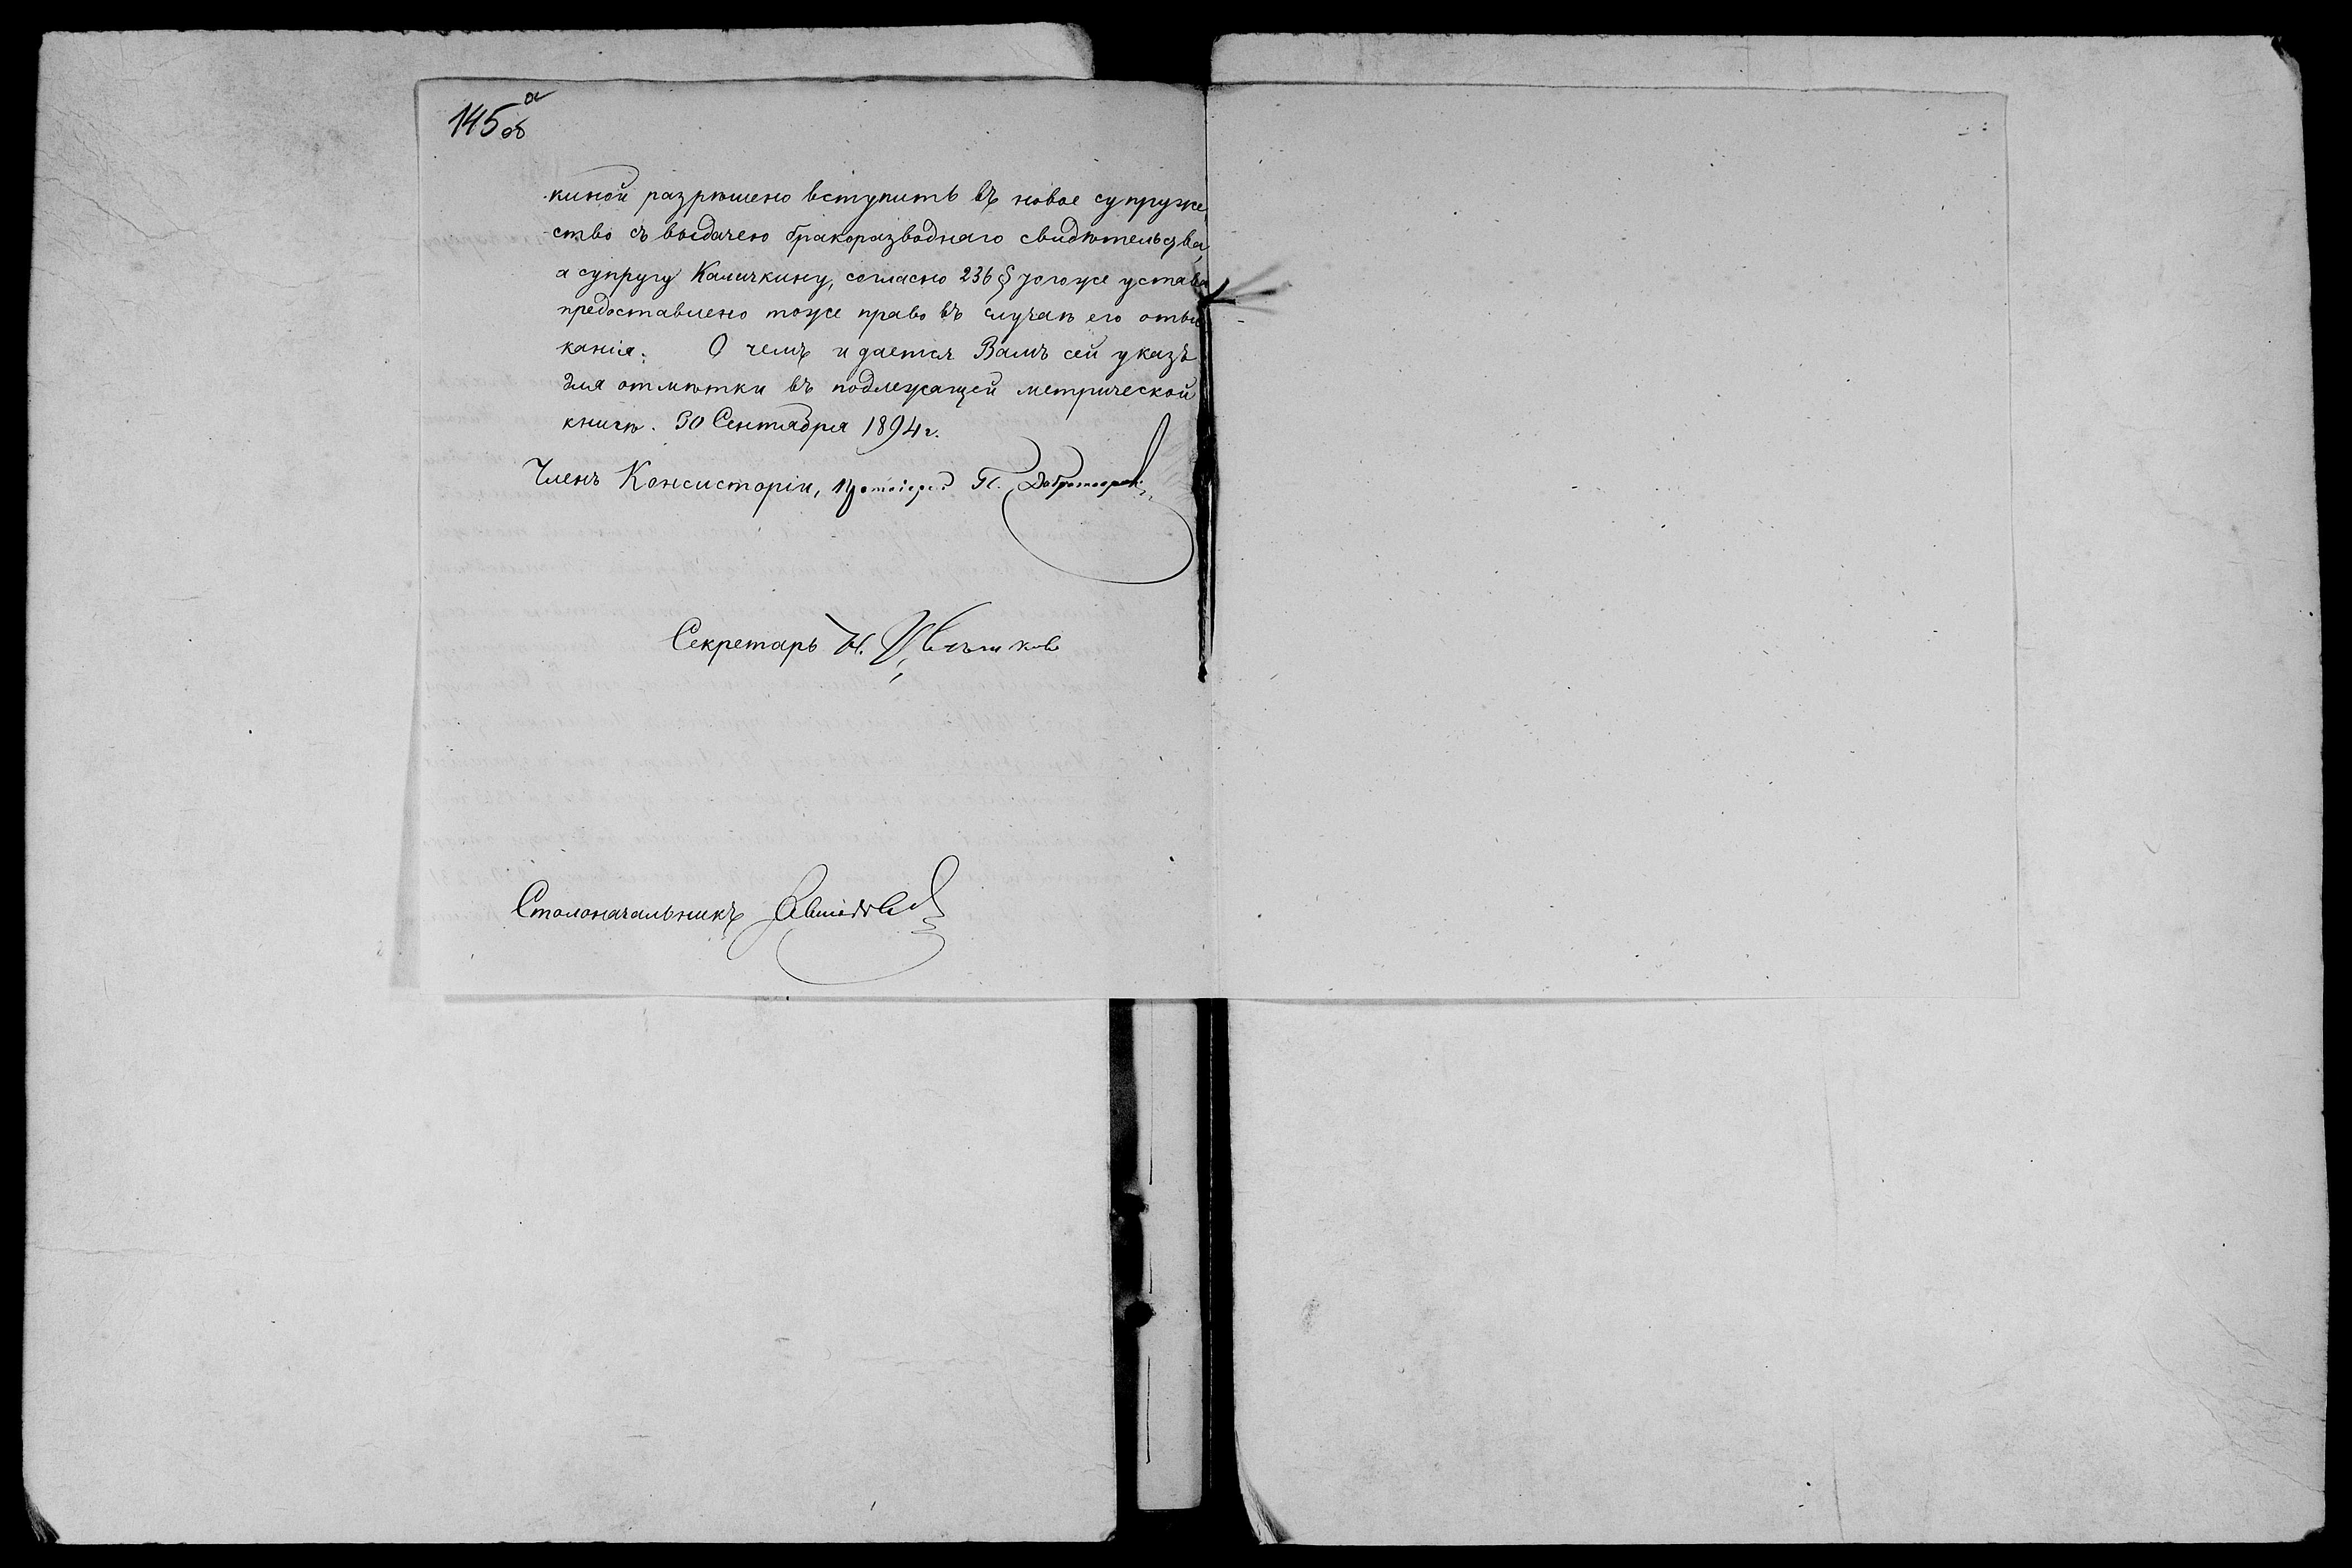 145 а об
киной разрѣшено вступить въ новое супруже
ство съ выдачею бракоразводнаго свидѣтельства,
а супругу Каличкину, согласно 236 § тогоже устава
предоставлено тоже право въ случаѣ его отыс
канія. О чемъ и дается Вамъ сей указъ
для отмѣтки въ подлежащей метрической
книгѣ. 30 Сентября 1894 г.
Членъ Консисторіи, Протоіерей П.
Секретарь Н.
Столоначальникъ